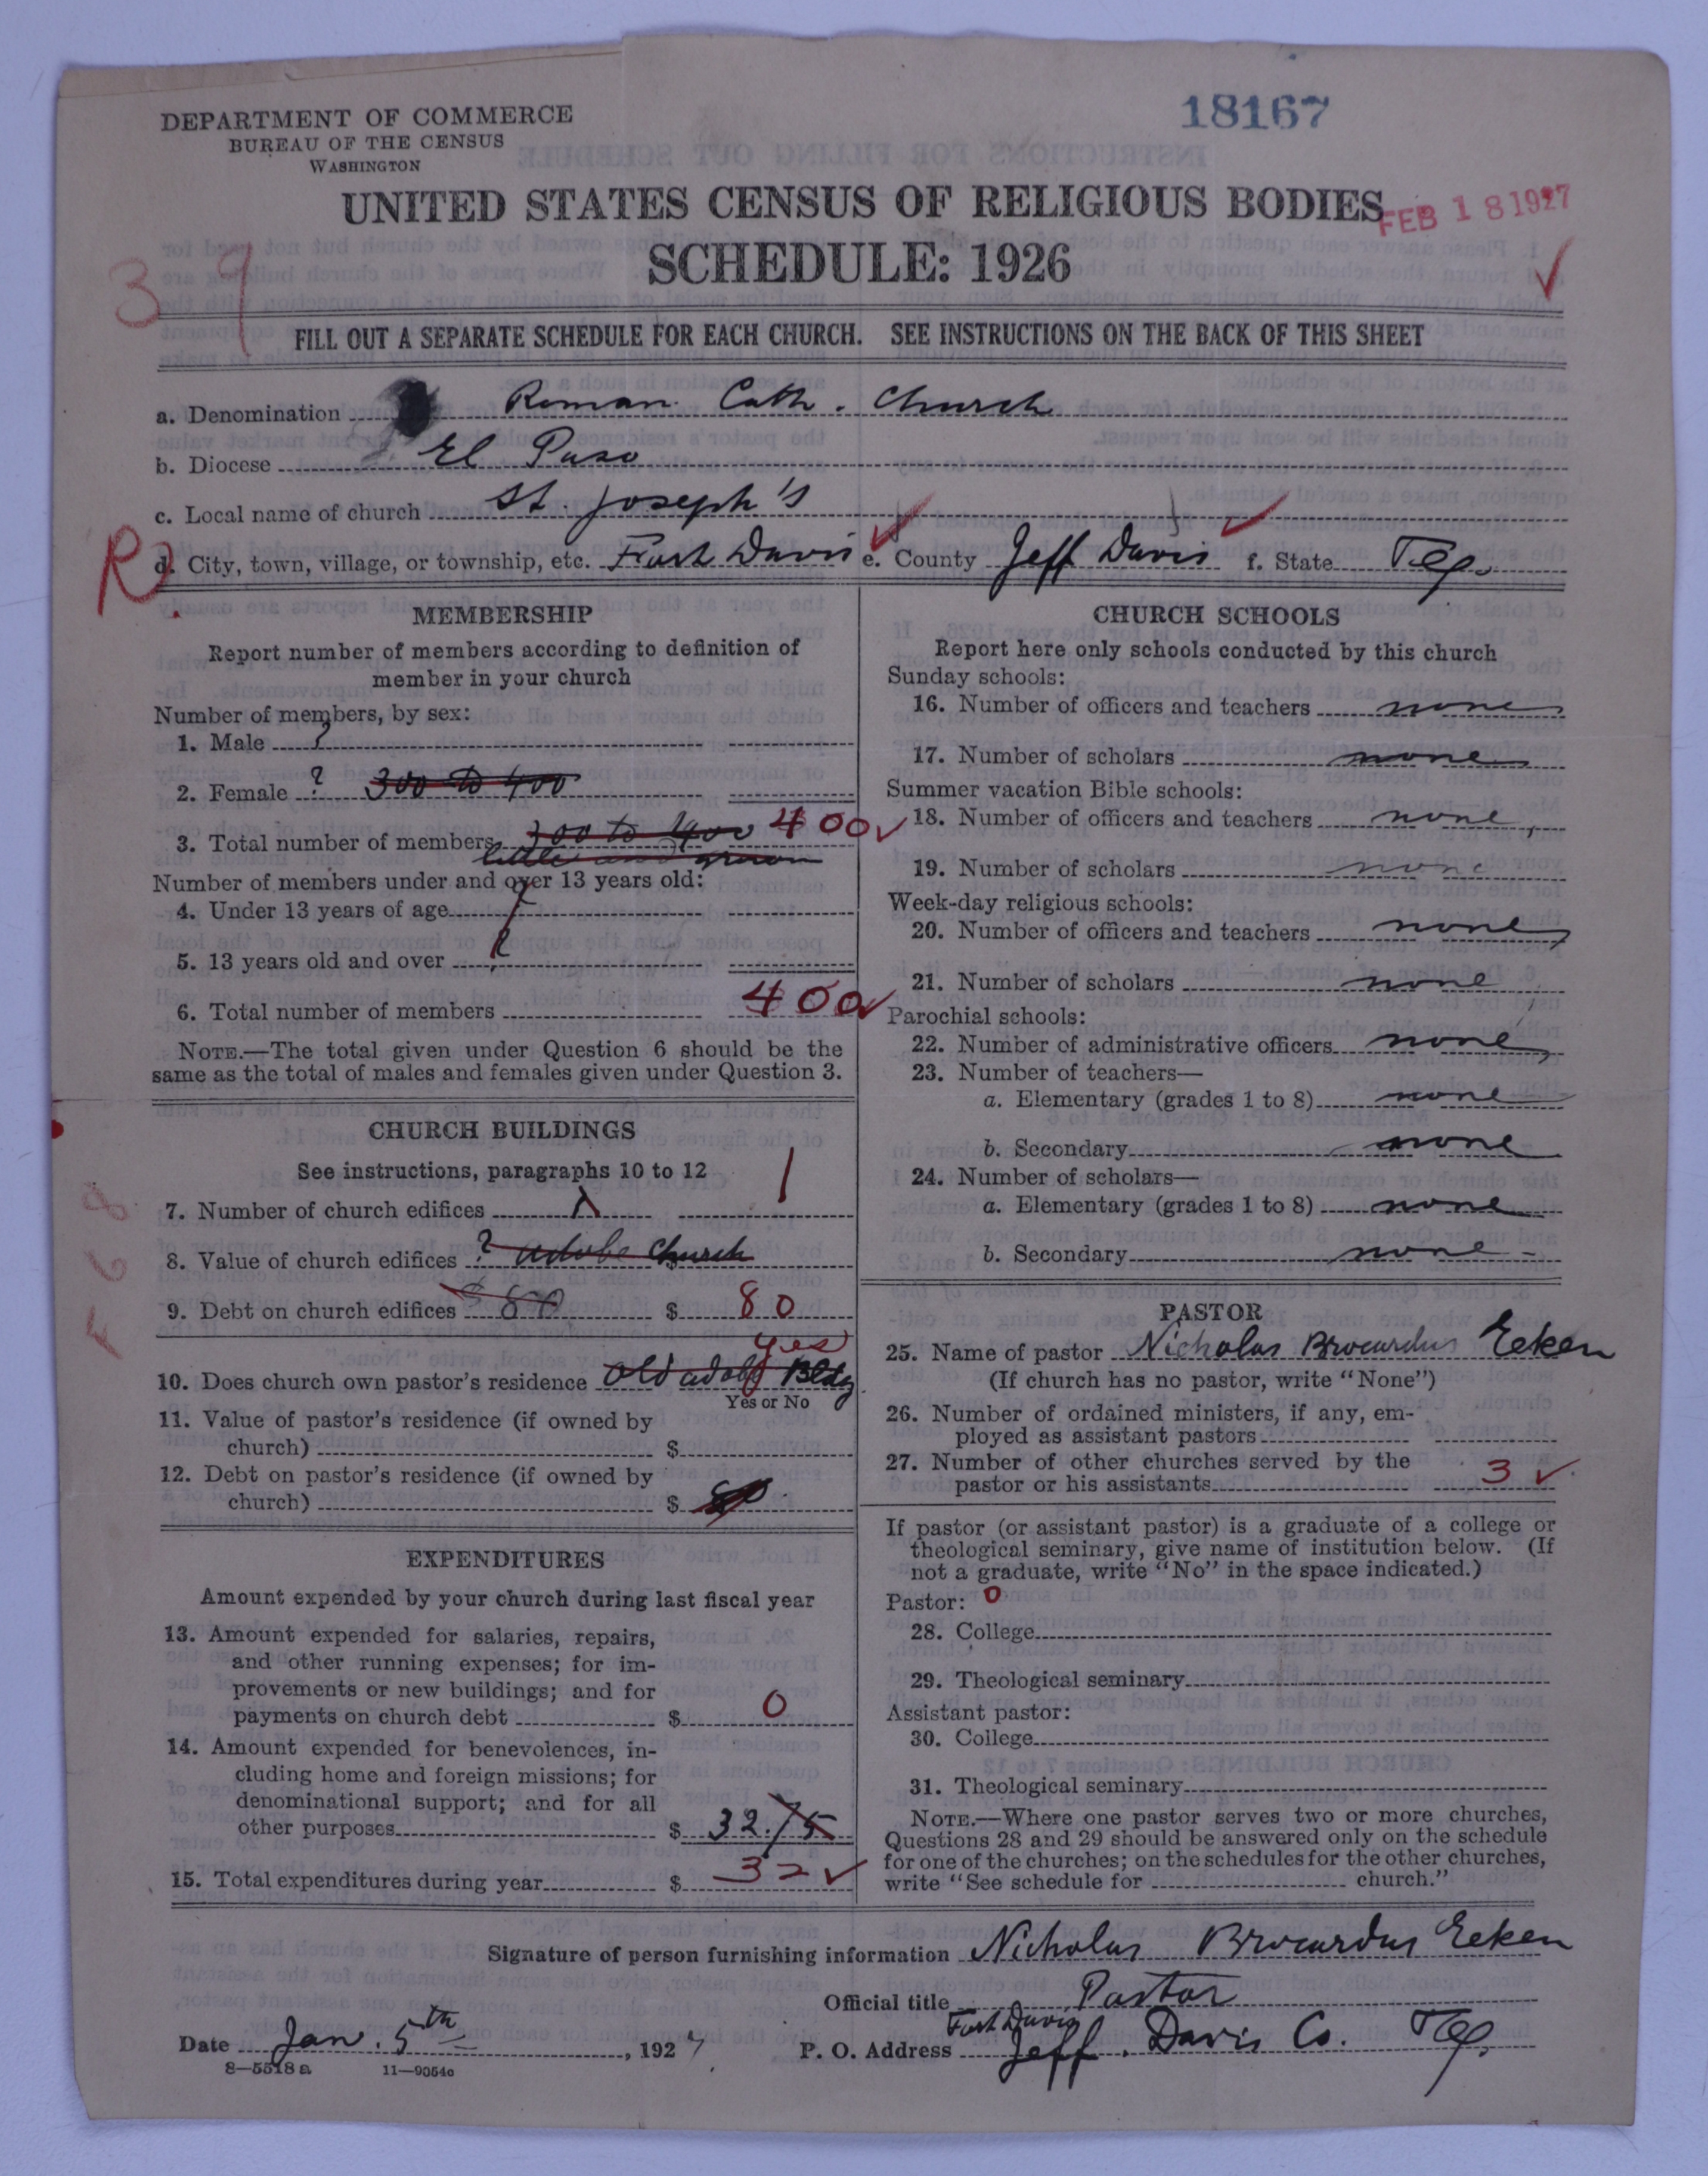 DEPARTMENT OF COMMERCE
BUREAU OF THE CENSUS
WASHINGTON
18167
UNITED STATES CENSUS OF RELIGIOUS BODIES
FEB 18 1927
SCHEDULE: 1926
39
FILL OUT A SEPARATE SCHEDULE FOR EACH CHURCH. SEE INSTRUCTIONS ON THE BACK OF THIS SHEET
a. Denomination Roman Cath. Church
b. Diocese El Paso
c. Local name of church St. Joseph's
R.
d. City, town, village, or township, etc. Fort Davis e. County Jeff Davis f. State Tex.
MEMBERSHIP
Report number of members according to definition of
member in your church
Number of members, by sex:
1. Male ?
2. Female ? 300 to 400
3. Total number of members 300 to 400 400
little and grown
Number of members under and over 13 years old:
4. Under 13 years of age ?
5. 13 years old and over ?
6. Total number of members 400
NOTE.—The total given under Question 6 should be the
same as the total of males and females given under Question 3.
CHURCH BUILDINGS
See instructions, paragraphs 10 to 12
7. Number of church edifices 1 1
8. Value of church edifices ? adobe church $
9. Debt on church edifices $ 80 $ 80
yes
10. Does church own pastor's residence old adobe Bldg
Yes or No
11. Value of pastor's residence (if owned by
church) $
12. Debt on pastor's residence (if owned by
church) $
F 6 8
EXPENDITURES
Amount expended by your church during last fiscal year
13. Amount expended for salaries, repairs,
and other running expenses; for im-
provements or new buildings; and for
payments on church debt $ 0
14. Amount expended for benevolences, in-
cluding home and foreign missions; for
denominational support; and for all
other purposes $ 32.75
15. Total expenditures during year $ 32
CHURCH SCHOOLS
Report here only schools conducted by this church
Sunday schools:
16. Number of officers and teachers none
17. Number of scholars none
Summer vacation Bible schools:
18. Number of officers and teachers none
19. Number of scholars none
Week-day religious schools:
20. Number of officers and teachers none
21. Number of scholars none
Parochial schools:
22. Number of administrative officers none
23. Number of teachers—
a. Elementary (grades 1 to 8) none
b. Secondary none
24. Number of scholars—
a. Elementary (grades 1 to 8) none
b. Secondary none
PASTOR
25. Name of pastor Nicholas Brocardus Eeken
(If church has no pastor, write "None")
26. Number of ordained ministers, if any, em-
ployed as assistant pastors
27. Number of other churches served by the
pastor or his assistants 3
If pastor (or assistant pastor) is a graduate of a college or
theological seminary, give name of institution below. (If
not a graduate, write "No" in the space indicated.)
Pastor: 0
28. College
29. Theological seminary
Assistant pastor:
30. College
31. Theological seminary
NOTE.—Where one pastor serves two or more churches,
Questions 28 and 29 should be answered only on the schedule
for one of the churches; on the schedules for the other churches,
write "See schedule for church."
Signature of person furnishing information Nicholas Brocardus Eeken
Official title Pastor
Fort Davis
Date Jan. 5th, 1927 P. O. Address Jeff. Davis Co. Tex.
8—5518 a 11—9054c